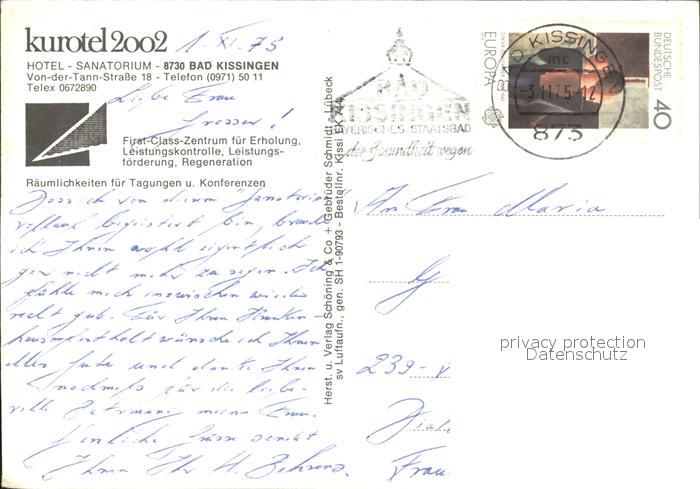 kurotel 2002
HOTEL - SANATORIUM - 8730 BAD KISSINGEN
Von-der-Tann-Straße 18 - Telefon (0971) 50 11
Telex 0672890
1. XI. 75
Liebe Frau
First-Class-Zentrum für Erholung,
Leistungskontrolle, Leistungs-
förderung, Regeneration
Räumlichkeiten für Tagungen u. Konferenzen
Dass ich von diesem Sanatorium
begeistert bin, brauche
ich Ihnen wohl eigentlich
gar nicht mehr zu sagen. Ich
fühle mich inzwischen wieder
recht gut. Für Ihren Kranken-
hausaufenthalt wünsche ich Ihnen
alles Gute und danke Ihnen
nochmals für die liebe-
volle Betreuung meiner Frau.
Herzliche Grüsse sendet
Ihnen Ihr H. Behrens.
Herst. u. Verlag Schöning & Co + Gebrüder Schmidt - Lübeck
sv Luftaufn., gen. SH 1-90793 - Bestellnr. Kissi SK 744
BAD
KISSINGEN
BAYERISCHES STAATSBAD
der Gesundheit wegen
BAD KISSINGEN
mc
-3.11.75-12
873
EUROPA
DEUTSCHE
BUNDESPOST
40
An Frau Maria
239-
Frau
privacy protection
Datenschutz